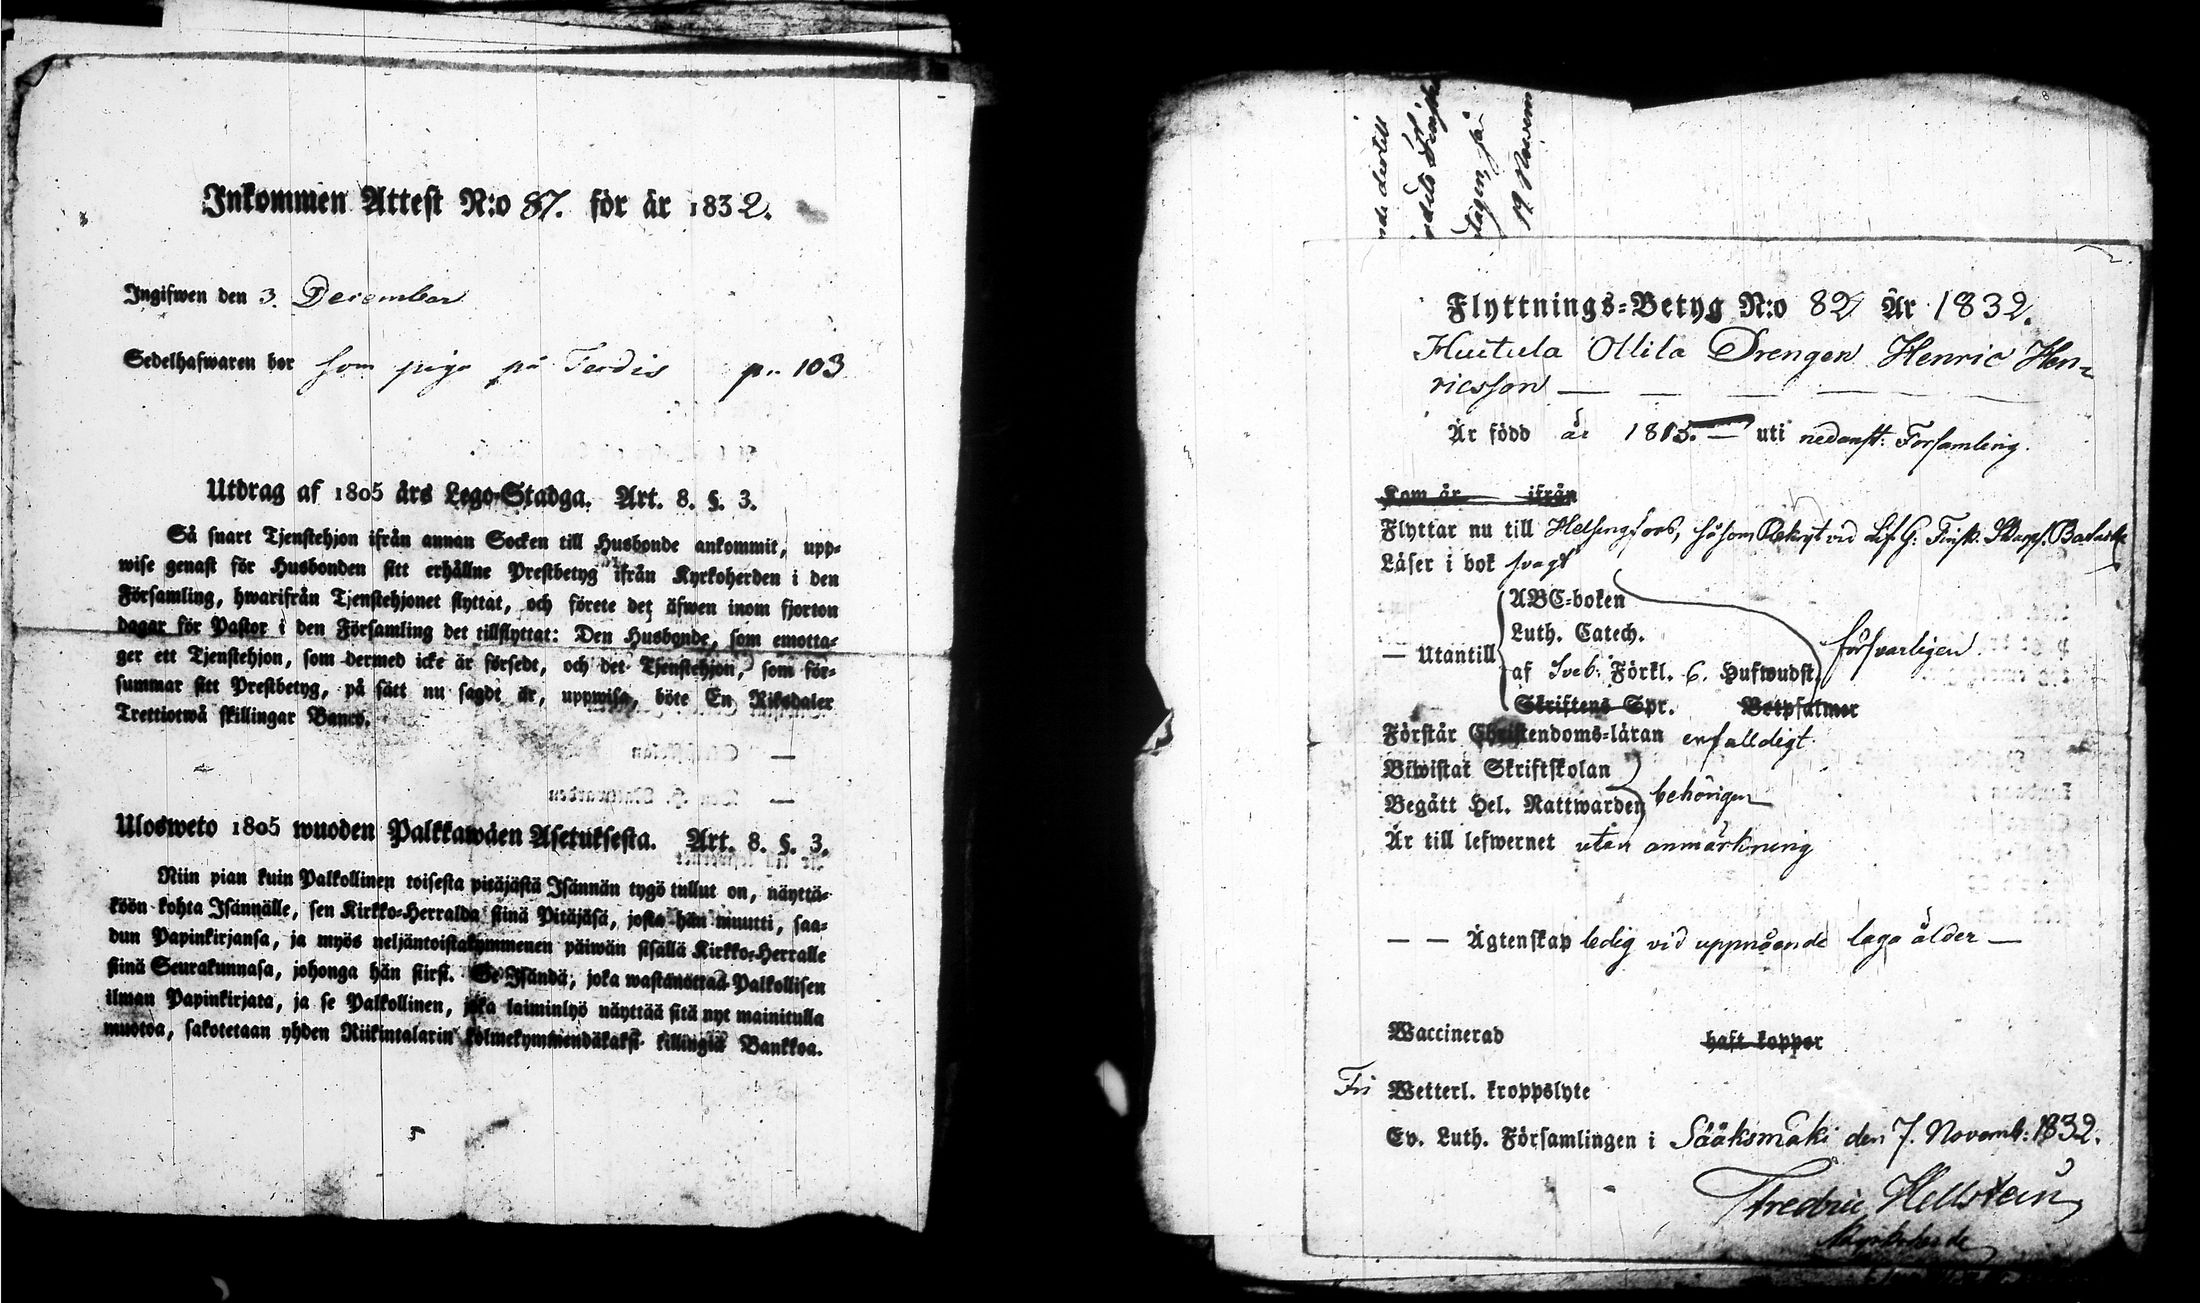 Inkommen Attest N:o 87. för år 1832.
Ingifwen den 3. December
Sedelhafwaren bor som piga på Terdis p. 103
Utdrag af 1805 års Lego-Stadga. Art. 8. §. 3.
Så snart Tjenstehjon ifrån annan Socken till Husbonde ankommit, upp-
wise genast för Husbonden sitt erhållne Prestbetyg ifrån Kyrkoherden i den
Församling, hwarifrån Tjenstehjonet flyttat, och förete det äfwen inom fjorton
dagar för Pastor i den Församling det tillflyttat: Den Husbonde, som emotta-
ger ett Tjenstehjon, som dermed icke är försedt, och det Tjenstehjon, som för-
summar sitt Prestbetyg, på sätt nu sagdt är, uppwisa, böte En Riksdaler
Trettiotwå skillingar Banco.
Ulosweto 1805 wuoden Palkkawäen Asetuksesta. Art. 8. §. 3.
Niin pian kuin Palkollinen toisesta pitäjästä Isännän tygö tullut on, näyttä-
köön kohta Isännälle, sen Kirkko-Herralda siinä Pitäjäsä, josta hän muutti, saa-
dun Papinkirjansa, ja myös neljäntoistakymmenen päiwän sisällä Kirkko-Herralle
siinä Seurakunnasa, johonga hän siirst. Se Isändä, joka wastanottaa Palkollisen
ilman Papinkirjata, ja se Palkollinen, joka laiminlyö näyttää sitä nyt mainitulla
muotoa, sakotetaan yhden Riikintalarin kolmekymmendäkaksi killingiä Bankkoa.
19 Novem
Flyttnings-Betyg N:o 82 År 1832.
Huitula Ollila Drengen Henric Hen-
ricsson
Är född år 1813. — uti nedanst: Församling.
Kom år ifrån
Flyttar nu till Helsingfors, såsom Rekryt vid Lif G: Finsk. Skarps. Batails
Läser i bok svagt
ABC-boken
Luth. Catech.
— Utantill
af Sveb. Förkl. 6. Hufwudst. försvarligen.
Skriftens Spr. Botpsalmer
Förstår Christendoms-läran enfalldigt
Biwistat Skriftskolan
Begått Hel. Nattwarden behörigen
Är till lefwernet utan anmärkning
— — Ägtenskap ledig vid uppnående laga ålder —
Waccinerad haft koppor
Fri Wetterl. kroppslyte
Ev. Luth. Församlingen i Sääksmäki den 7. Novemb: 1832.
Fredric Hellstein
Kyrkoherde